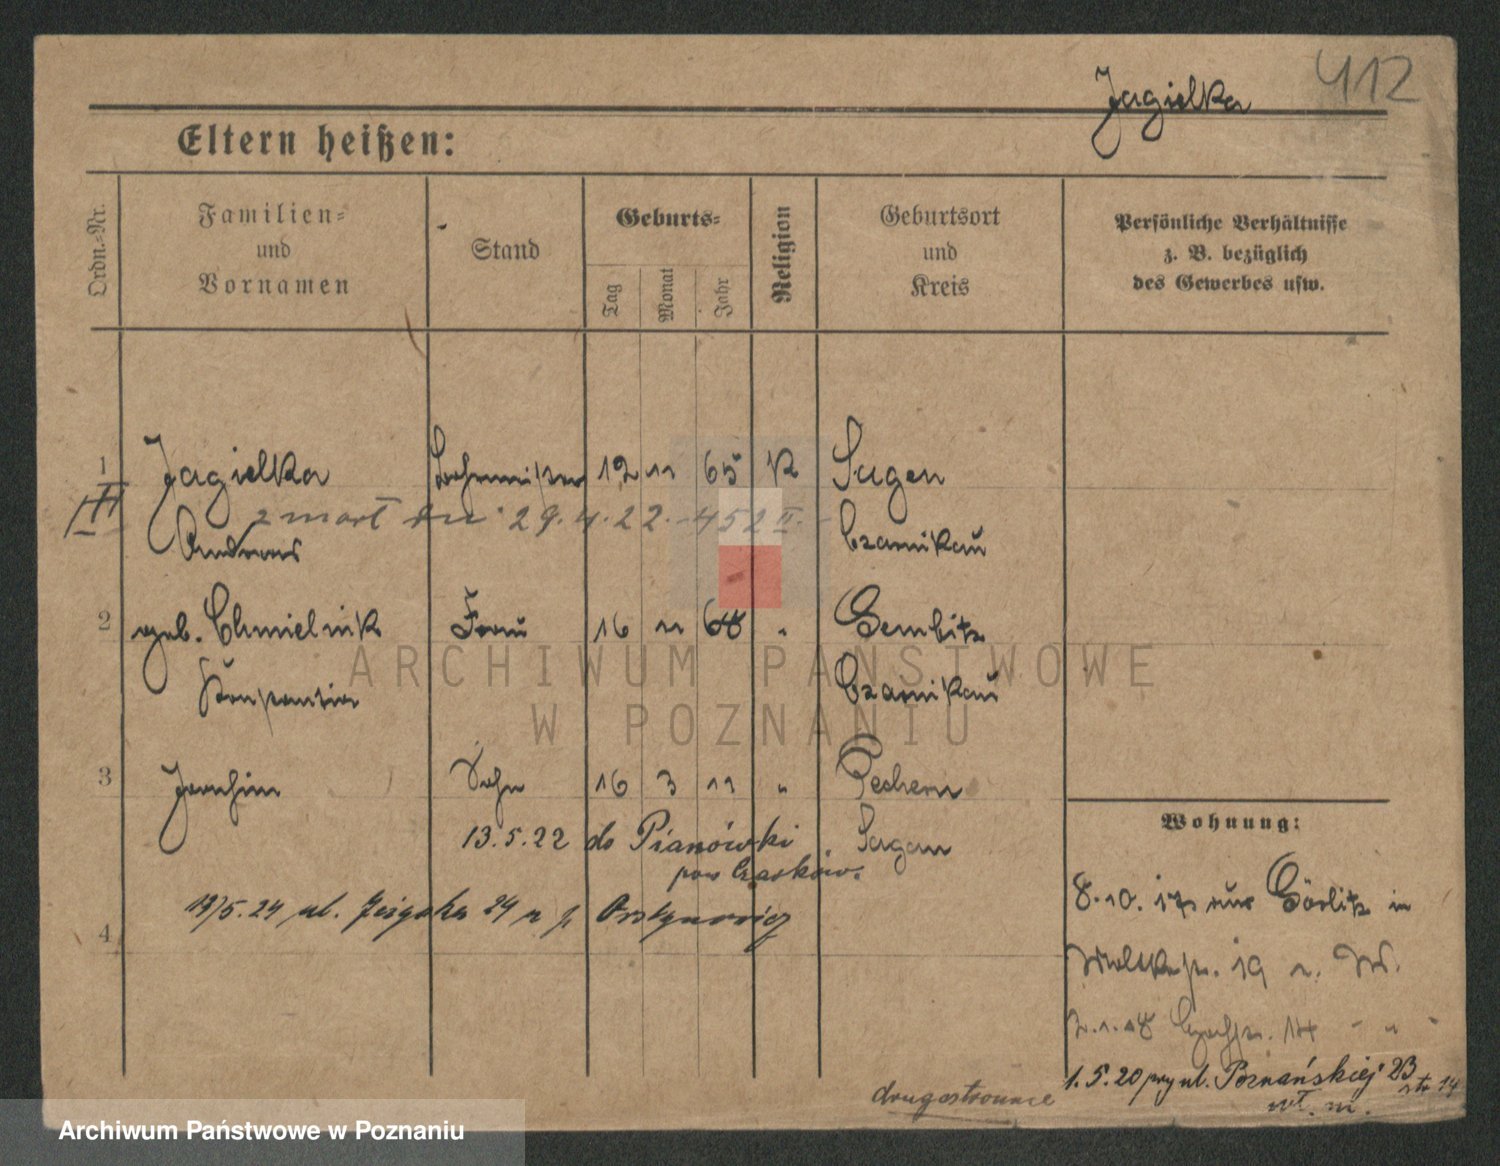 412
Jagielka
Eltern heißen:
Ordn.-Nr.
Familien-
und
Vornamen
Stand
Geburts-
Tag
Monat
Jahr
Religion
Geburtsort
und
Kreis
Persönliche Verhältnisse
z. B. bezüglich
des Gewerbes usw.
1 Jagielka 12 11 65 K Sagen
III
zmarł dn. 29.4.22. 452 II.
Andreas Czarnikau
2 geb. Chmielnik Frau 16 11 68 " Gembitz
Konstantia Czarnikau
3 Joachim Sohn 16 3 11 " Pechern
13.5.22 do Pianówki Sagan
pow Czarków.
19/5.24 ul. 24 n f.
4
Wohnung:
8.10.17 aus Görlitz in
Moltkestr. 19 n. W.
2.1.18 14 - " -
1.5.20 przy ul. Poznańskiej 23
str 14
wł. m.
drugostronnie
ARCHIWUM PAŃSTWOWE
W POZNANIU
Archiwum Państwowe w Poznaniu